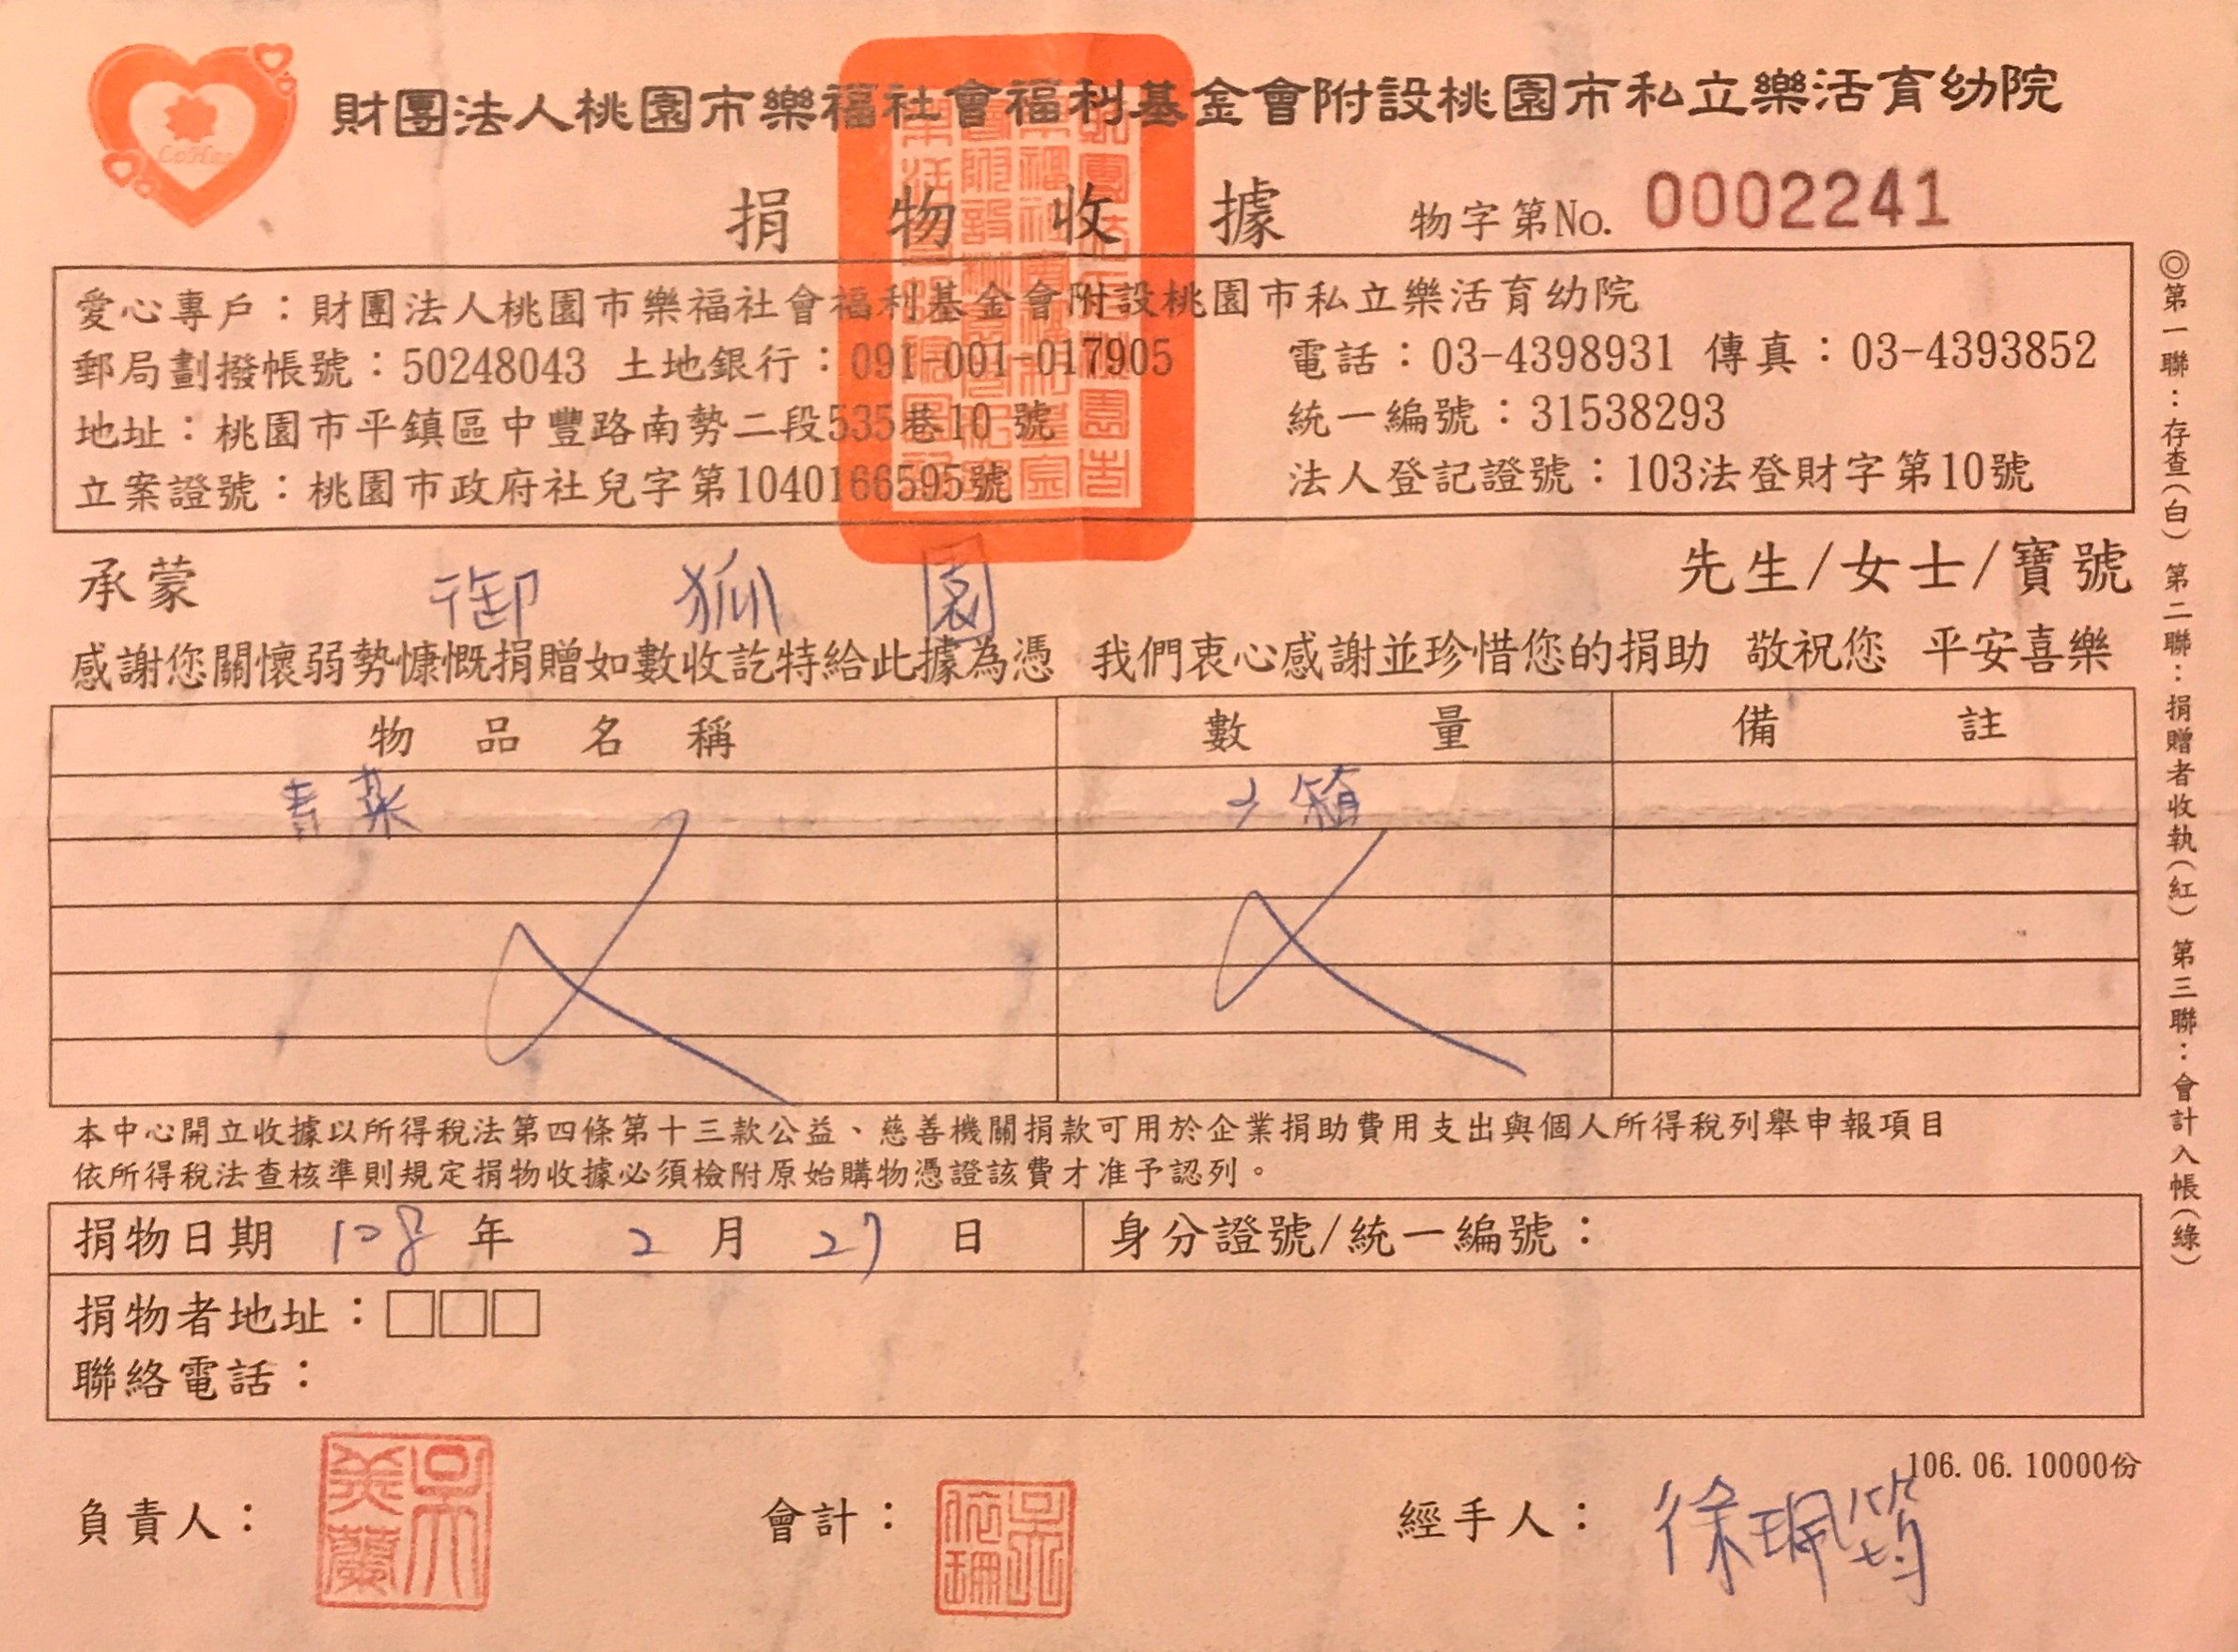 財團法人桃園市樂福社會福利基金會附設桃園市私立樂活育幼院
LoHas
捐物收據
物字第No. 0002241
愛心專戶：財團法人桃園市樂福社會福利基金會附設桃園市私立樂活育幼院
郵局劃撥帳號：50248043 土地銀行：091-001-017905 電話：03-4398931 傳真：03-4393852
地址：桃園市平鎮區中豐路南勢二段535巷10號 統一編號：31538293
立案證號：桃園市政府社兒字第1040166595號 法人登記證號：103法登財字第10號
承蒙 御狐園 先生/女士/寶號
感謝您關懷弱勢慷慨捐贈如數收訖特給此據為憑 我們衷心感謝並珍惜您的捐助 敬祝您 平安喜樂
物品名稱 數量 備註
青菜 箱
本中心開立收據以所得稅法第四條第十三款公益、慈善機關捐款可用於企業捐助費用支出與個人所得稅列舉申報項目
依所得稅法查核準則規定捐物收據必須檢附原始購物憑證該費才准予認列。
捐物日期 108 年 2 月 27 日 身分證號/統一編號：
捐物者地址：□□□
聯絡電話：
106.06.10000份
負責人： 吳美蘭 會計： 吳依珊 經手人： 徐珮筠
◎第一聯：存查(白) 第二聯：捐贈者收執(紅) 第三聯：會計入帳(綠)